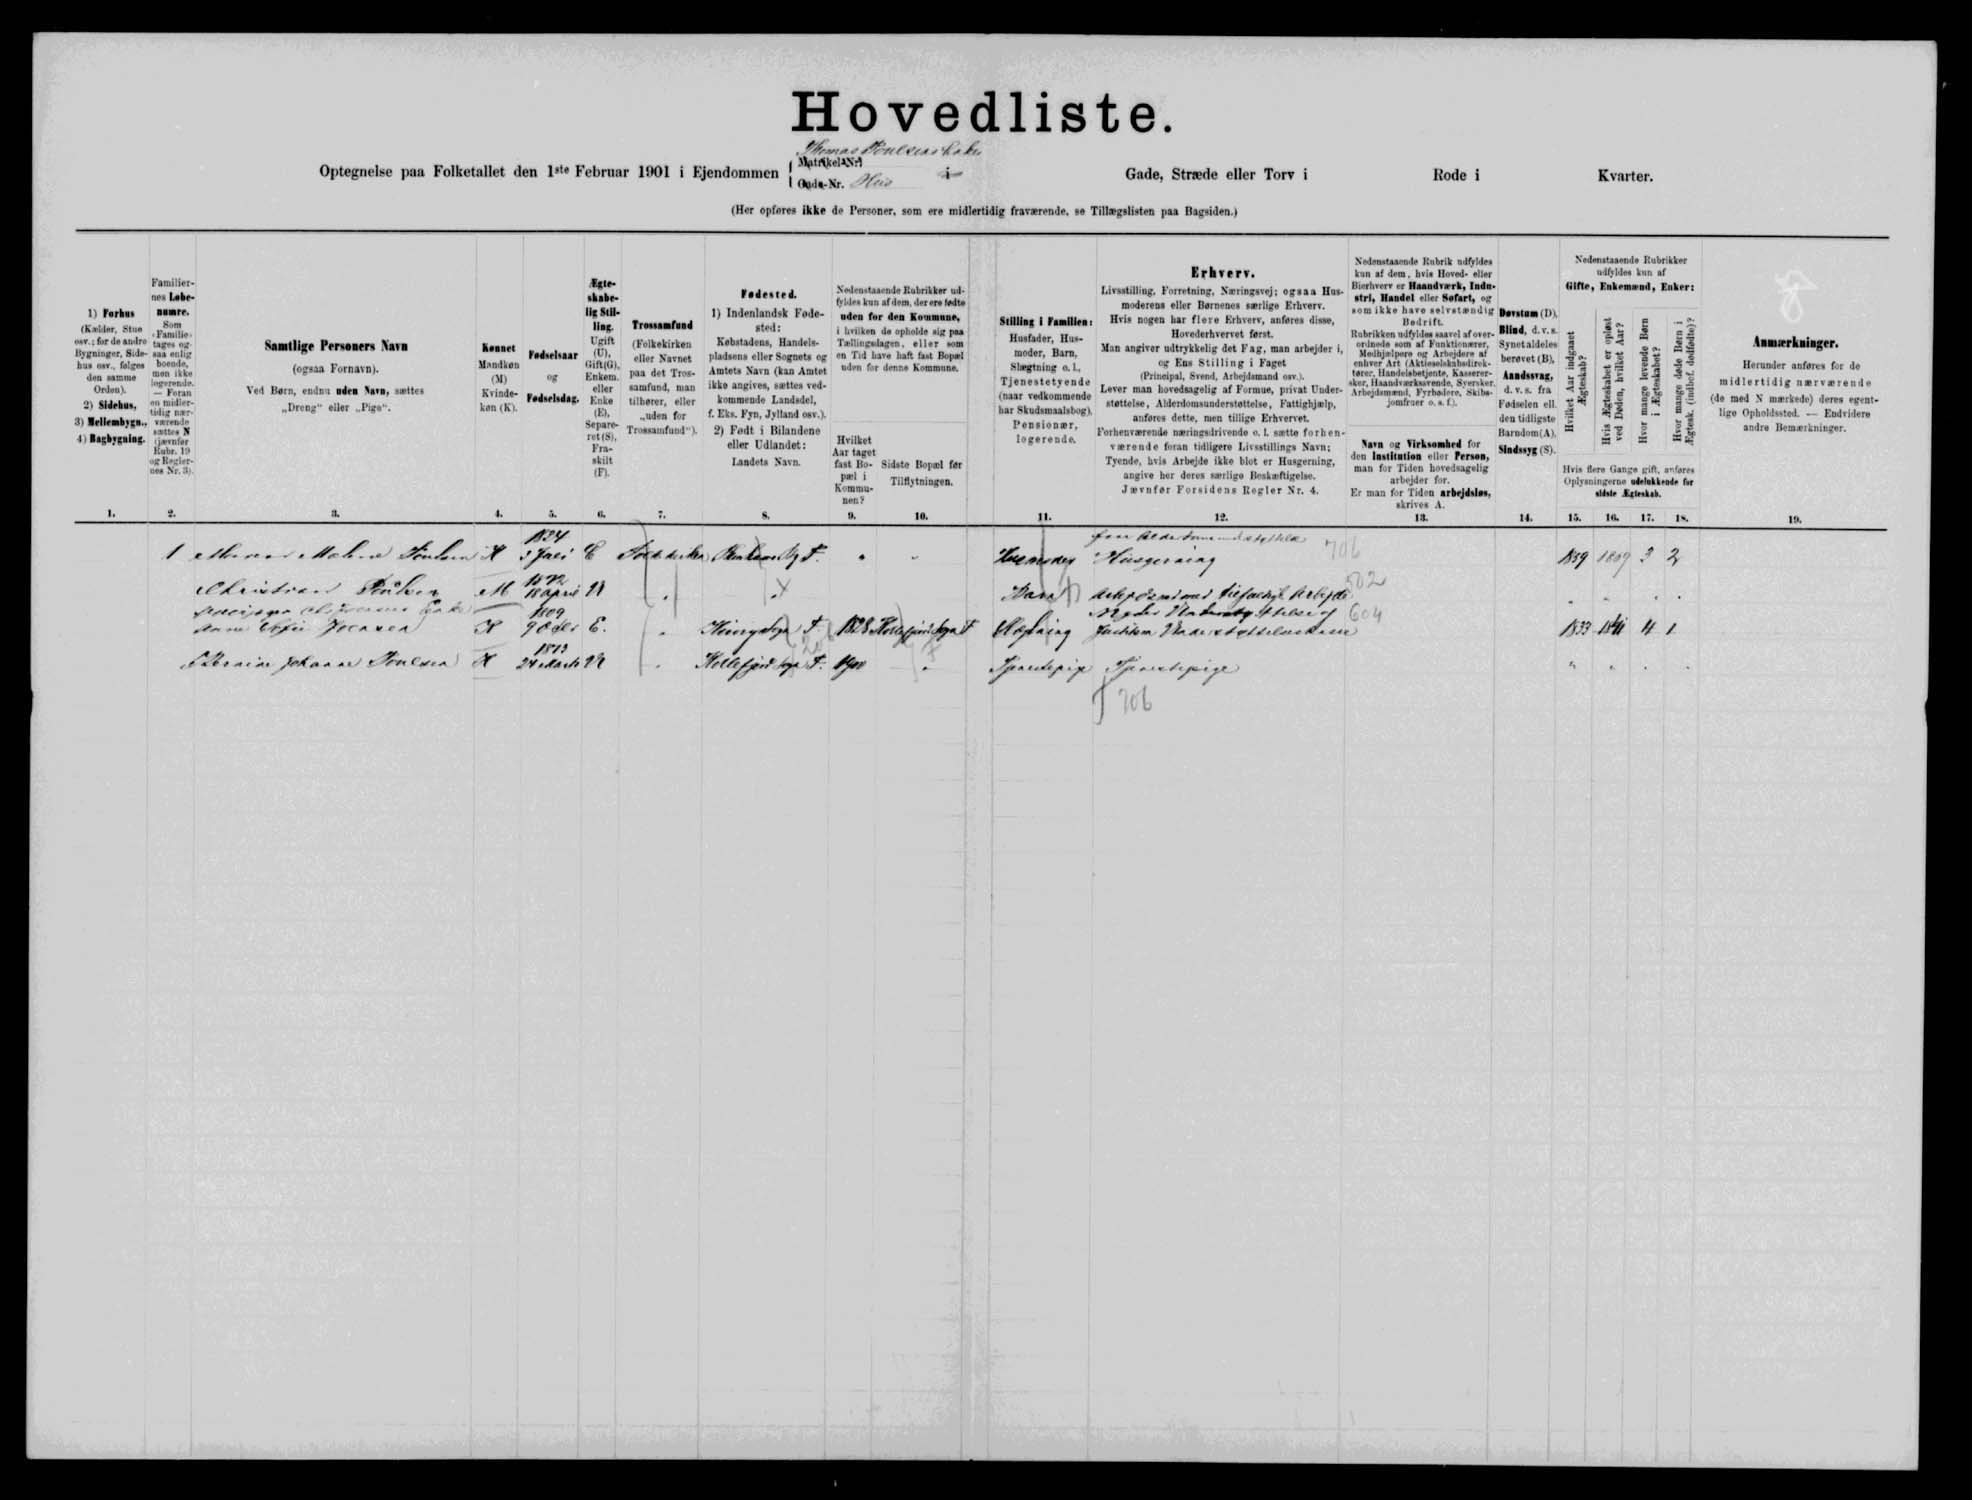 Hovedliste.
Thomas Poulsens Enkes
Optegnelse paa Folketallet den 1ste Februar 1901 i Ejendommen Matrikel-Nr. i Gade, Stræde eller Torv i Rode i Kvarter.
Gade-Nr. Hus
(Her opføres ikke de Personer, som ere midlertidig fraværende, se Tillægslisten paa Bagsiden.)
1) Forhus
(Kælder, Stue
osv.; for de andre
Bygninger, Side-
hus osv., følges
den samme
Orden).
2) Sidehus,
3) Mellembygn.,
4) Bagbygning.
Familier-
nes Løbe-
numre.
Som
„Familie“
tages og-
saa enlig
boende,
men ikke
logerende.
— Foran
en midler-
tidig nær-
værende
sættes N
(jævnfør
Rubr. 19
og Regler-
nes Nr. 3).
Samtlige Personers Navn
(ogsaa Fornavn).
Ved Børn, endnu uden Navn, sættes
„Dreng“ eller „Pige“.
Kønnet
Mandkøn
(M)
Kvinde-
køn (K).
Fødselsaar
og
Fødselsdag.
Ægte-
skabe-
lig Stil-
ling.
Ugift
(U),
Gift(G),
Enkem.
eller
Enke
(E),
Separe-
ret (S),
Fra-
skilt
(F).
Trossamfund
(Folkekirken
eller Navnet
paa det Tros-
samfund, man
tilhører, eller
„uden for
Trossamfund“).
Fødested.
1) Indenlandsk Føde-
sted:
Købstadens, Handels-
pladsens eller Sognets og
Amtets Navn (kan Amtet
ikke angives, sættes ved-
kommende Landsdel,
f. Eks. Fyn, Jylland osv.).
2) Født i Bilandene
eller Udlandet:
Landets Navn.
Nedenstaaende Rubrikker ud-
fyldes kun af dem, der ere fødte
uden for den Kommune,
i hvilken de opholde sig paa
Tællingsdagen, eller som
en Tid have haft fast Bopæl
uden for denne Kommune.
Hvilket
Aar taget
fast Bo-
pæl i
Kommu-
nen?
Sidste Bopæl før
Tilflytningen.
Stilling i Familien:
Husfader, Hus-
moder, Barn,
Slægtning o. l.,
Tjenestetyende
(naar vedkommende
har Skudsmaalsbog),
Pensionær,
logerende.
Erhverv.
Livsstilling, Forretning, Næringsvej; ogsaa Hus-
moderens eller Børnenes særlige Erhverv.
Hvis nogen har flere Erhverv, anføres disse,
Hovederhvervet først.
Man angiver udtrykkelig det Fag, man arbejder i,
og Ens Stilling i Faget
(Principal, Svend, Arbejdsmand osv.).
Lever man hovedsagelig af Formue, privat Under-
støttelse, Alderdomsunderstøttelse, Fattighjælp,
anføres dette, men tillige Erhvervet.
Forhenværende næringsdrivende o. l. sætte forhen-
værende foran tidligere Livsstillings Navn;
Tyende, hvis Arbejde ikke blot er Husgerning,
angive her deres særlige Beskæftigelse.
Jævnfør Forsidens Regler Nr. 4.
Nedenstaaende Rubrik udfyldes
kun af dem, hvis Hoved- eller
Bierhverv er Haandværk, Indu-
stri, Handel eller Søfart, og
som ikke have selvstændig
Bedrift.
Rubrikken udfyldes saavel af over-
ordnede som af Funktionærer,
Medhjælpere og Arbejdere af
enhver Art (Aktieselskabsdirek-
tører, Handelsbetjente, Kasserer-
sker, Haandværkssvende, Syersker,
Arbejdsmænd, Fyrbødere, Skibs-
jomfruer o. s. f.).
Navn og Virksomhed for
den Institution eller Person,
man for Tiden hovedsagelig
arbejder for.
Er man for Tiden arbejdsløs,
skrives A.
Døvstum (D),
Blind, d. v. s.
Synet aldeles
berøvet (B),
Aandssvag,
d. v. s. fra
Fødselen ell.
den tidligste
Barndom (A),
Sindssyg (S).
Nedenstaaende Rubrikker
udfyldes kun af
Gifte, Enkemænd, Enker:
Hvilket Aar indgaaet
Ægteskab?
Hvis Ægteskabet er opløst
ved Døden, hvilket Aar?
Hvor mange levende Børn
i Ægteskabet?
Hvor mange døde Børn i
Ægtesk. (indbef. dødfødte)?
Hvis flere Gange gift, anføres
Oplysningerne udelukkende for
sidste Ægteskab.
Anmærkninger.
Herunder anføres for de
midlertidig nærværende
(de med N mærkede) deres egent-
lige Opholdssted. — Endvidere
andre Bemærkninger.
1. 2. 3. 4. 5. 6. 7. 8. 9. 10. 11. 12. 13. 14. 15. 16. 17. 18. 19.
1824
1 Poulsen K 3 Juli E Folkekirken F. " " Husmoder Husgerning 706 1859 3 2
1872
Christian Poulsen M 18 April U " " Barn 502
1809
Anne Joensen K 9 E. " Sogn F. 1828 Kollefjord Sogn F 604 1833 4 1
1873
Johanne Poulsen K 24 Marts U " Kollefjord Sogn F. 1900 " Tjenestepige Tjenestepige
706